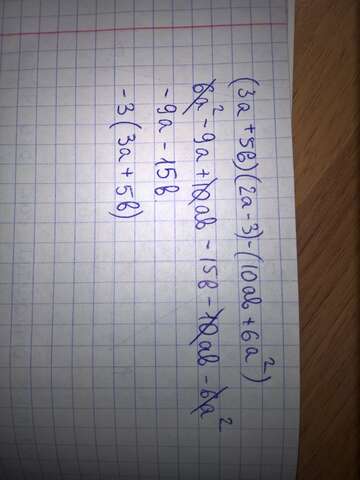 (3a+5b)(2a-3)-(10ab+6a²)
6a²-9a+10ab-15b-10ab-6a²
-9a-15b
-3(3a+5b)